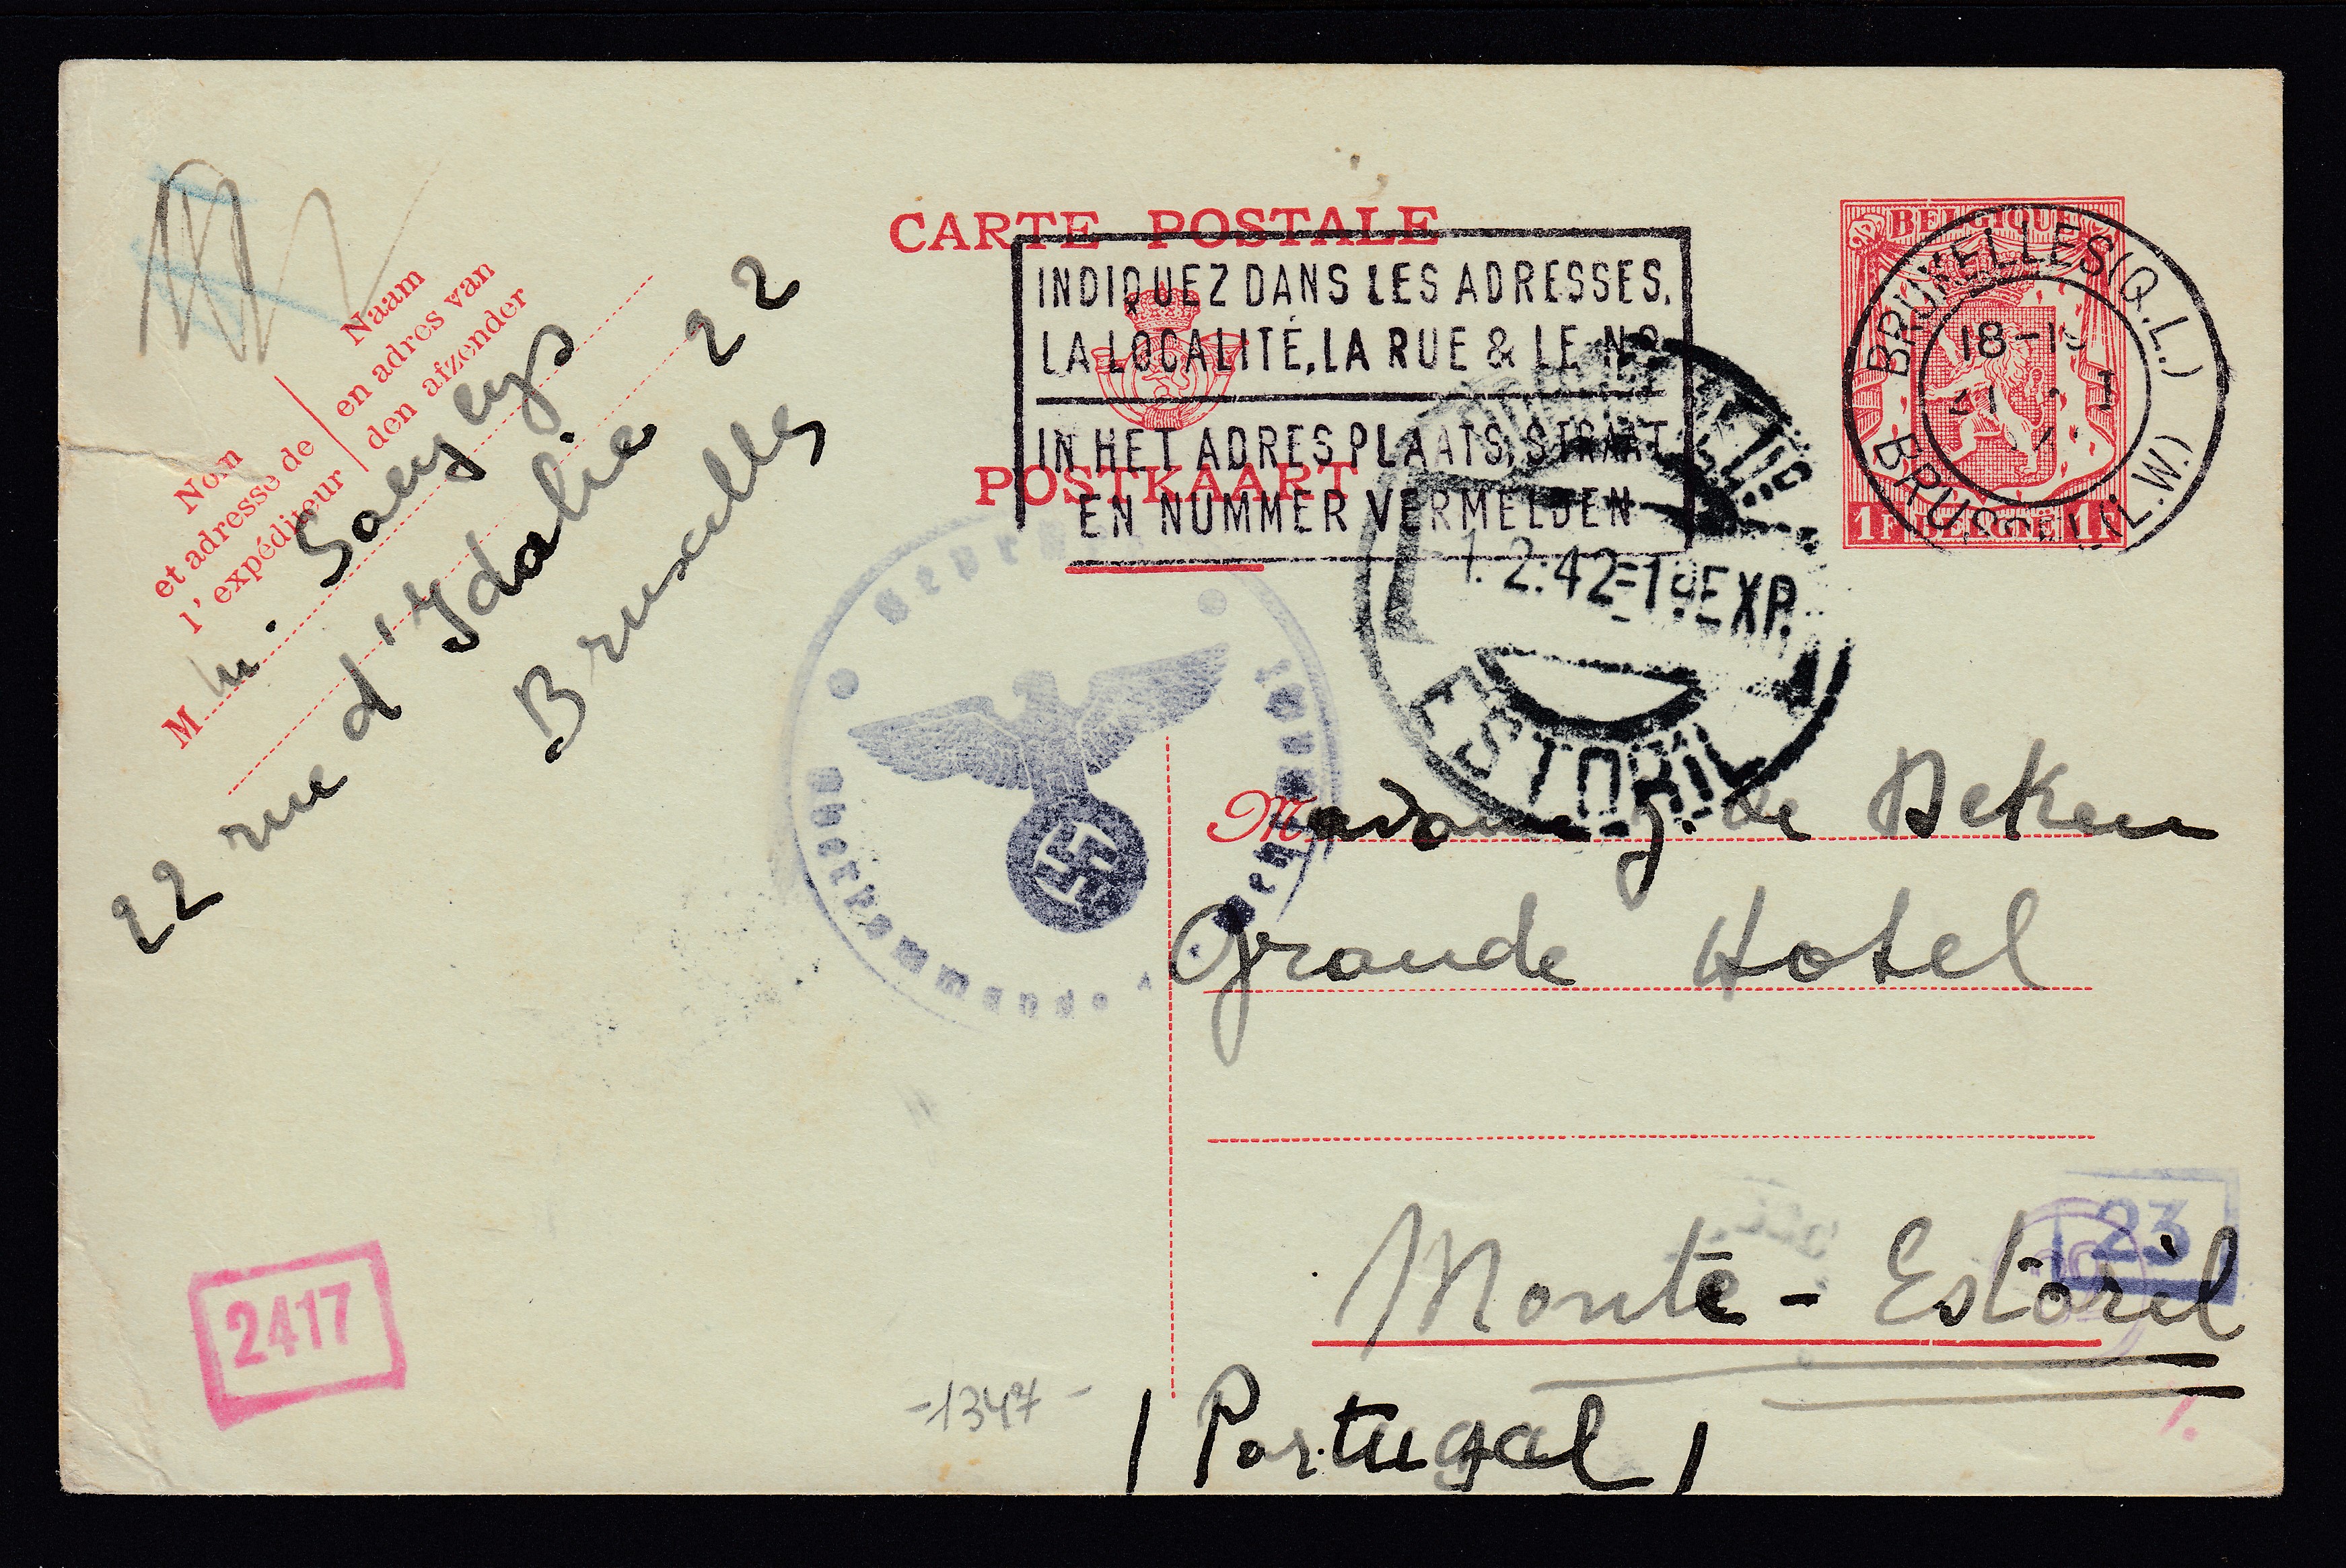 CARTE POSTALE
INDIQUEZ DANS LES ADRESSES,
LA LOCALITÉ, LA RUE & LE No
IN HET ADRES PLAATS, STRAAT
POSTKAART
EN NUMMER VERMELDEN
BELGIQUE
BRUXELLES (Q.L.)
18-19
BRUSSEL (L.W.)
1F BELGIË 1F
Nom
et adresse de
l'expéditeur
Naam
en adres van
den afzender
M
22 rue d'Idalie 22
Bruxelles
Geprüft
Oberkommando der Wehrmacht
1.2.42=1ªEXP.
ESTORIL
Madame J. de Deken
Grande Hotel
23
Monte-Estoril
(Portugal)
2417
-1347-